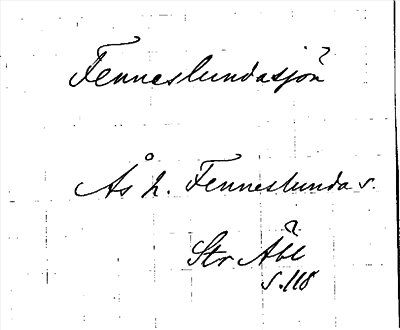 Fenneslundasjön
Ås h. Fenneslunda s.
Str Åbl
s. 118